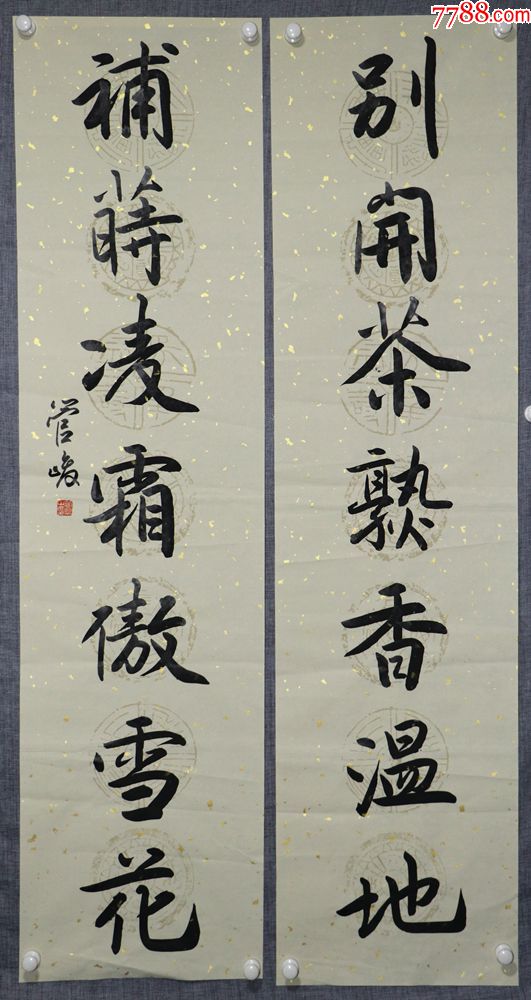 别开茶熟香温地
補蒔凌霜傲雪花
管峻
7788.com